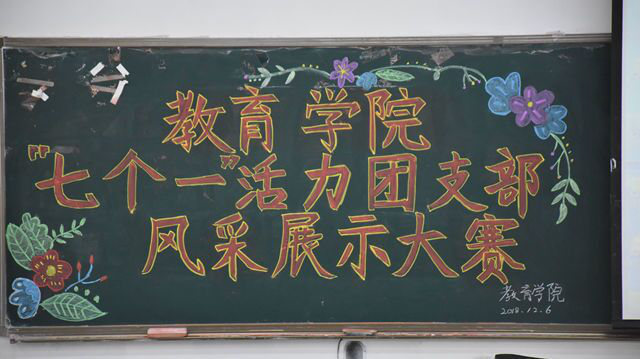 教育学院
"七个一"活力团支部
风采展示大赛
教育学院
2018.12.6